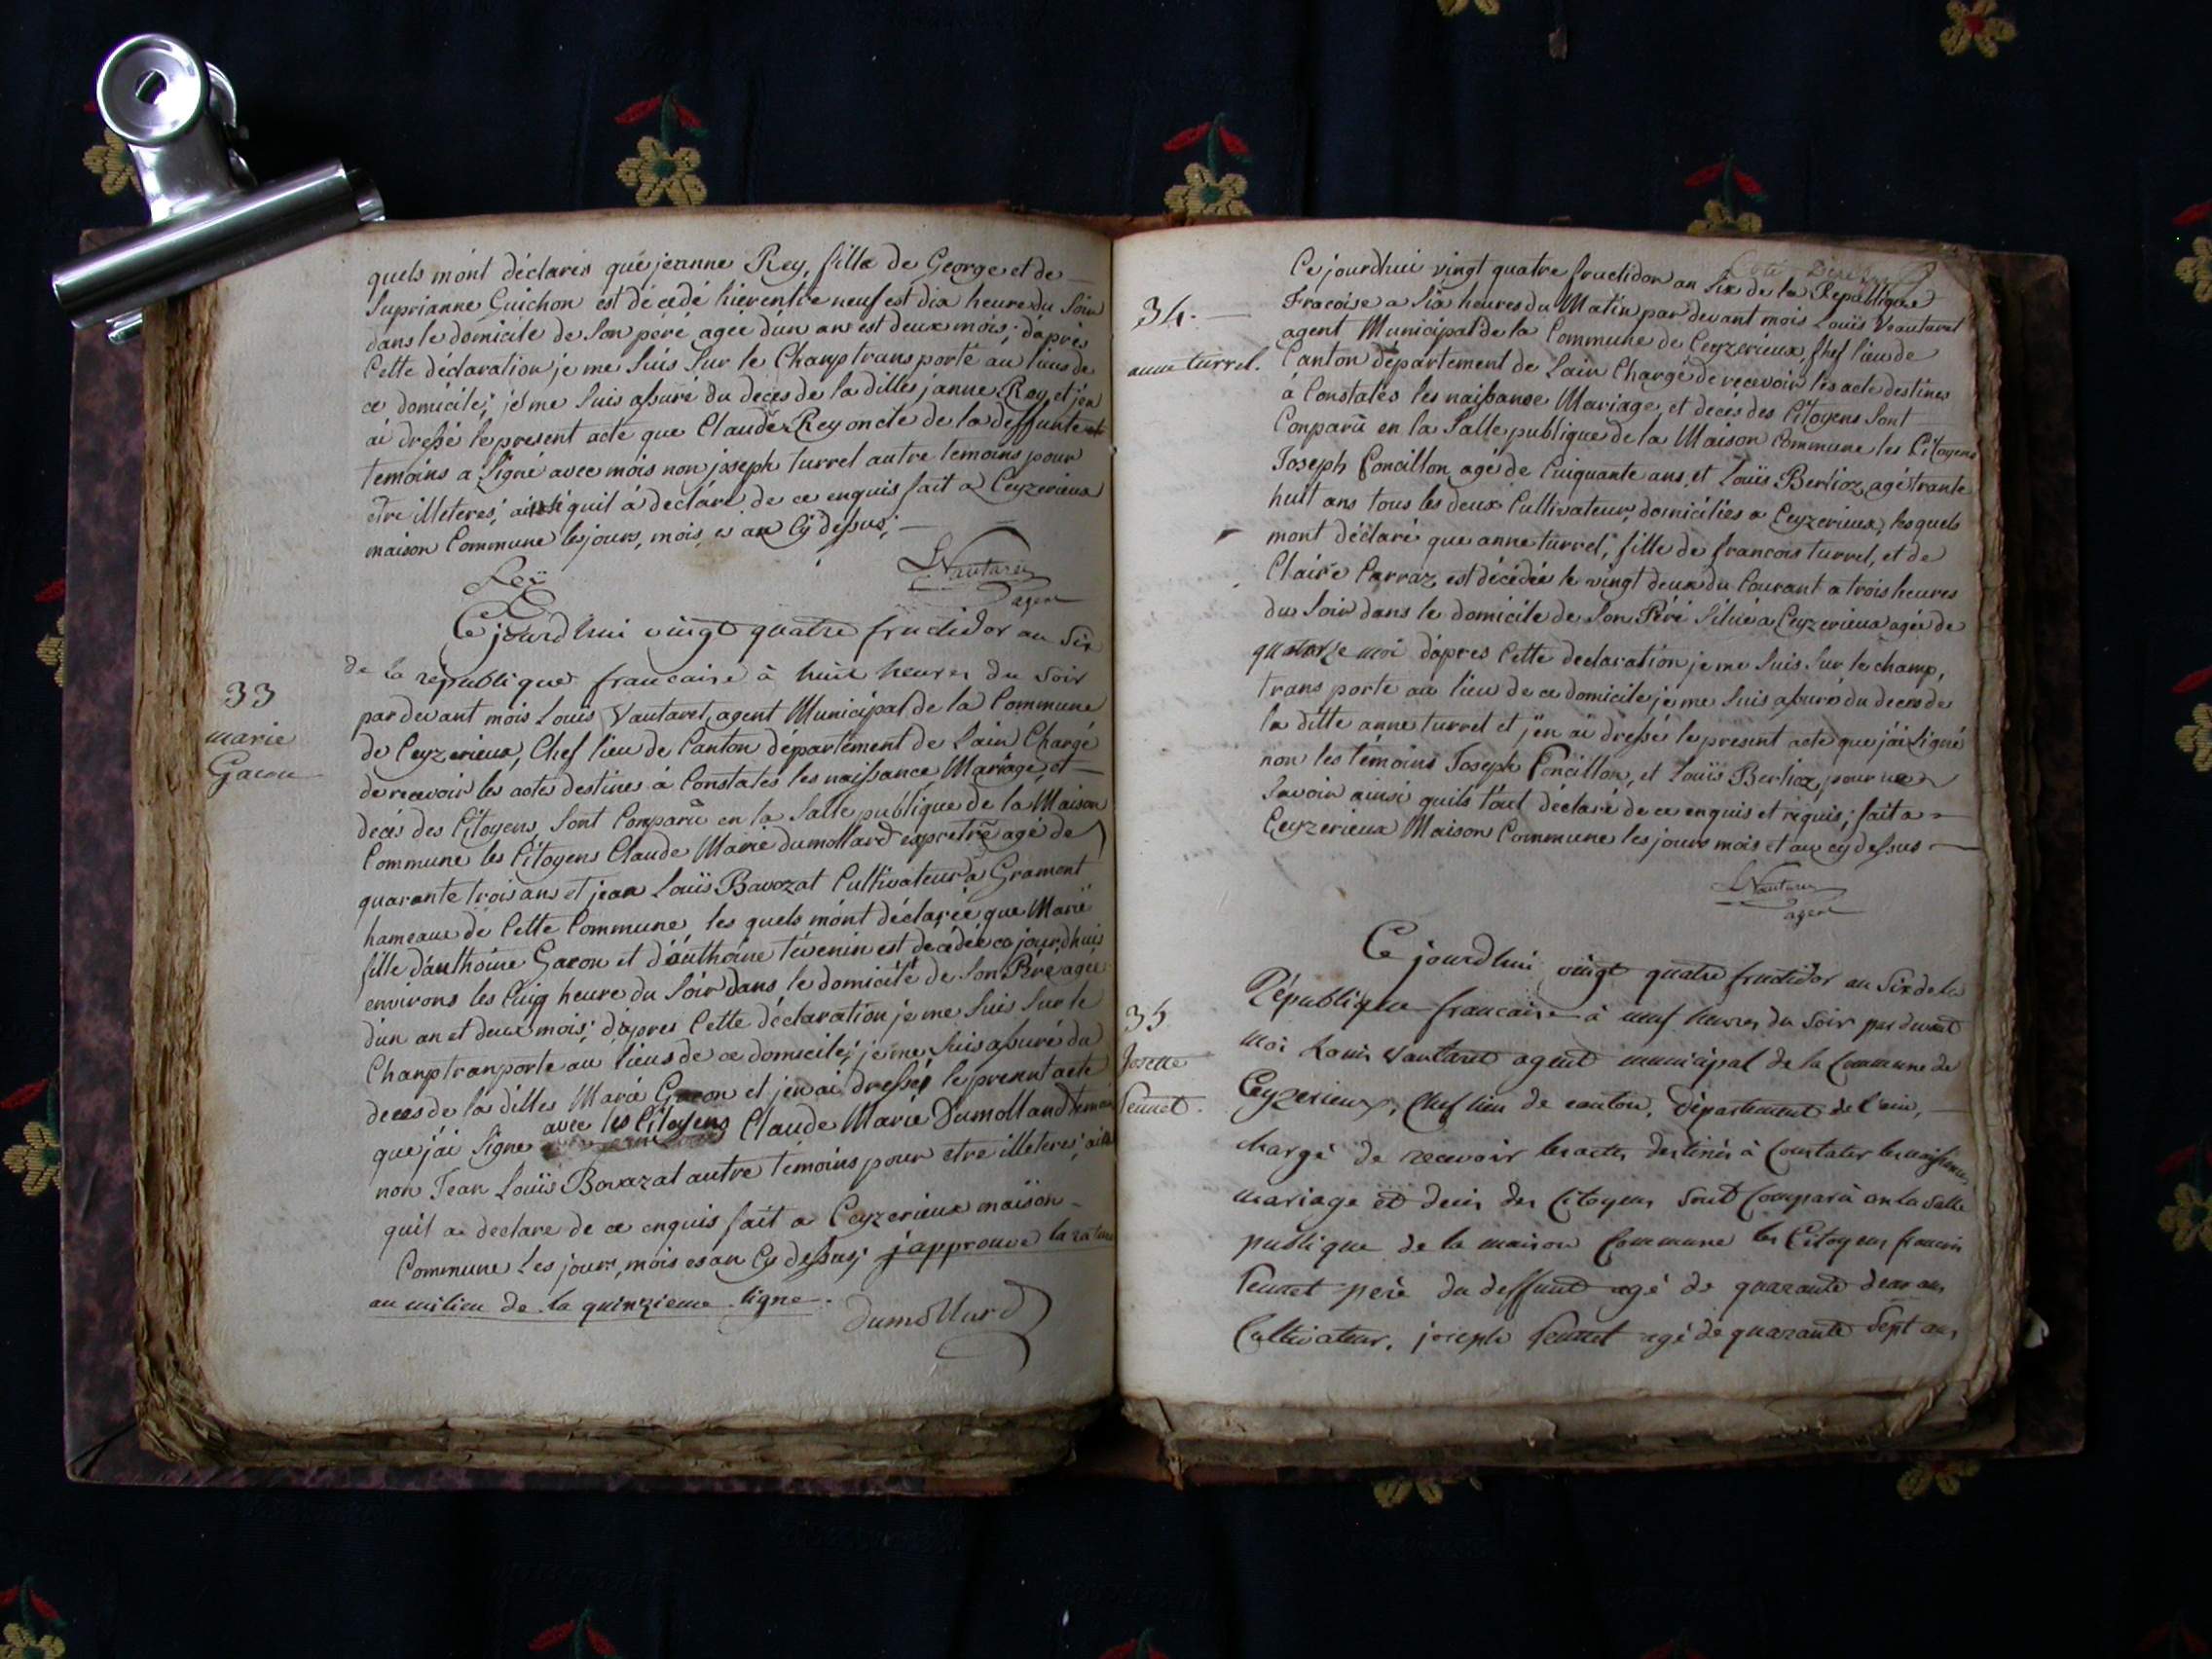 quels mónt déclarés que jeanne Rey, fille de George et de
Suprianne Guichon est décédé hier entre neuf est dix heure du Soir
dans le domicile de Son péré agée dún an est deux mois; dáprès
Cette déclaration je me Suis Sur le Champ transporté au lieus de
ce domicile; je me Suis assuré du deces de la dittes janne Rey et jen
ai dressé le present acte que Claude Rey oncle de la deffunte
temoins a Signé avec mois non joseph turrel autre temoins pour
etre illeteres; ainsi quil á declaré de ce enquis fait a Ceyzerieux
maison Commune les jours, mois, es an Cy dessus;
Rey
LVautaret
agent
Ce jourdhui vingt quatre fructidor an Six
de la république francaise à huit heures du Soir
33
marie
Gacon
par devant mois Louis Vautaret, agent Municipal de la Commune
de Ceyzerieux, Chef lieu de Canton département de Lain Chargé
de recevoir les actes destines á Constatés les naissance Mariage, et
decés des Citoyens, Sont Comparû en la Salle publique de la Maison
Commune les Citoyens Claude Marie dumollard expretre agé de
quarante trois ans et jean Louïs Bavozat Cultivateur a Gramont
hameaux de Cette Commune, les quels mónt déclarée que Marie
fille dánthoine Gacon et dánthoine tévenin est decédée ce jourdhuis
environs les Cinq heure du Soir dans le domicile de Son Péré agée
dún an et deux mois; dápres Cette déclaration je me Suis Sur le
Champ tranporte au lieus de ce domicile; je me Suis assuré du
deces de la dittes Marie Gacon et jen ai dressé le present acte
que jái Signe avec les Citoyens Claude Marie Dumolland temoins
non Jean Louïs Bavazat autre temoins pour etre illeteres; ainsi
quil a declare de ce enquis fait a Ceyzerieux maison
Commune Les jours, mois es an Cy dessus; japprouve la rature
au milieu de la quinzieme ligne.
Dumollard
Ce jourdhui vingt quatre fructidor an Six de la Republique
34.
anne turrel.
Fracoise a Six heures du Matin par devant mois Louïs Vautaret
agent Municipal de la Commune de Ceyzerieux, Chef lieu de
Canton département de Lain Chargé de recevoir les acte destines
á Constatés les naissance Mariage, et decés des Citoyens Sont
Conparû en la Salle publique de la Maison Commune les Citoyens
Joseph Poncillon agé de Cinquante ans, et Louïs Berlioz agé trante
huit ans tous les deux Cultivateur, domiciliés a Ceyzerieux, les quels
mont déclaré que anne turrel, fille de francois turrel, et de
Claire Carraz est décédée le vingt deux du Courant a trois heures
du Soir dans le domicile de Son Péré Situé a Ceyzerieux agée de
quatorze moi dápres Cette declaration je me Suis Sur le champ,
trans porte au lieu de ce domicile je me Suis assuré du deces de
la ditte anne turrel et jën ai dressé le present acte que jái Signé
non les témoins Joseph Poncillon, et Louïs Berlioz, pour ne
Savoir ainsi quils tont déclaré de ce enquis et requis; fait a
Ceyzerieux Maison Commune les jours mois et an cy dessus
LVautaret
agent
Ce jourdhui vingt quatre fructidor an Six de la
35
Josette
Peuret.
République francaise à neuf heures du Soir par devant
moi Louis Vautaret agent municipal de la Commune de
Ceyzerieux, Chef lieu de canton, département de l'ain,
chargé de recevoir les actes destinés à Constater les naissances
mariage et decès des Citoyens Sont Comparû en la Salle
publique de la maison Commune les Citoyens francois
Peuret père du deffunt agé de quarante deux ans
Cultivateur, joseph Peuret agé de quarante Sept ans